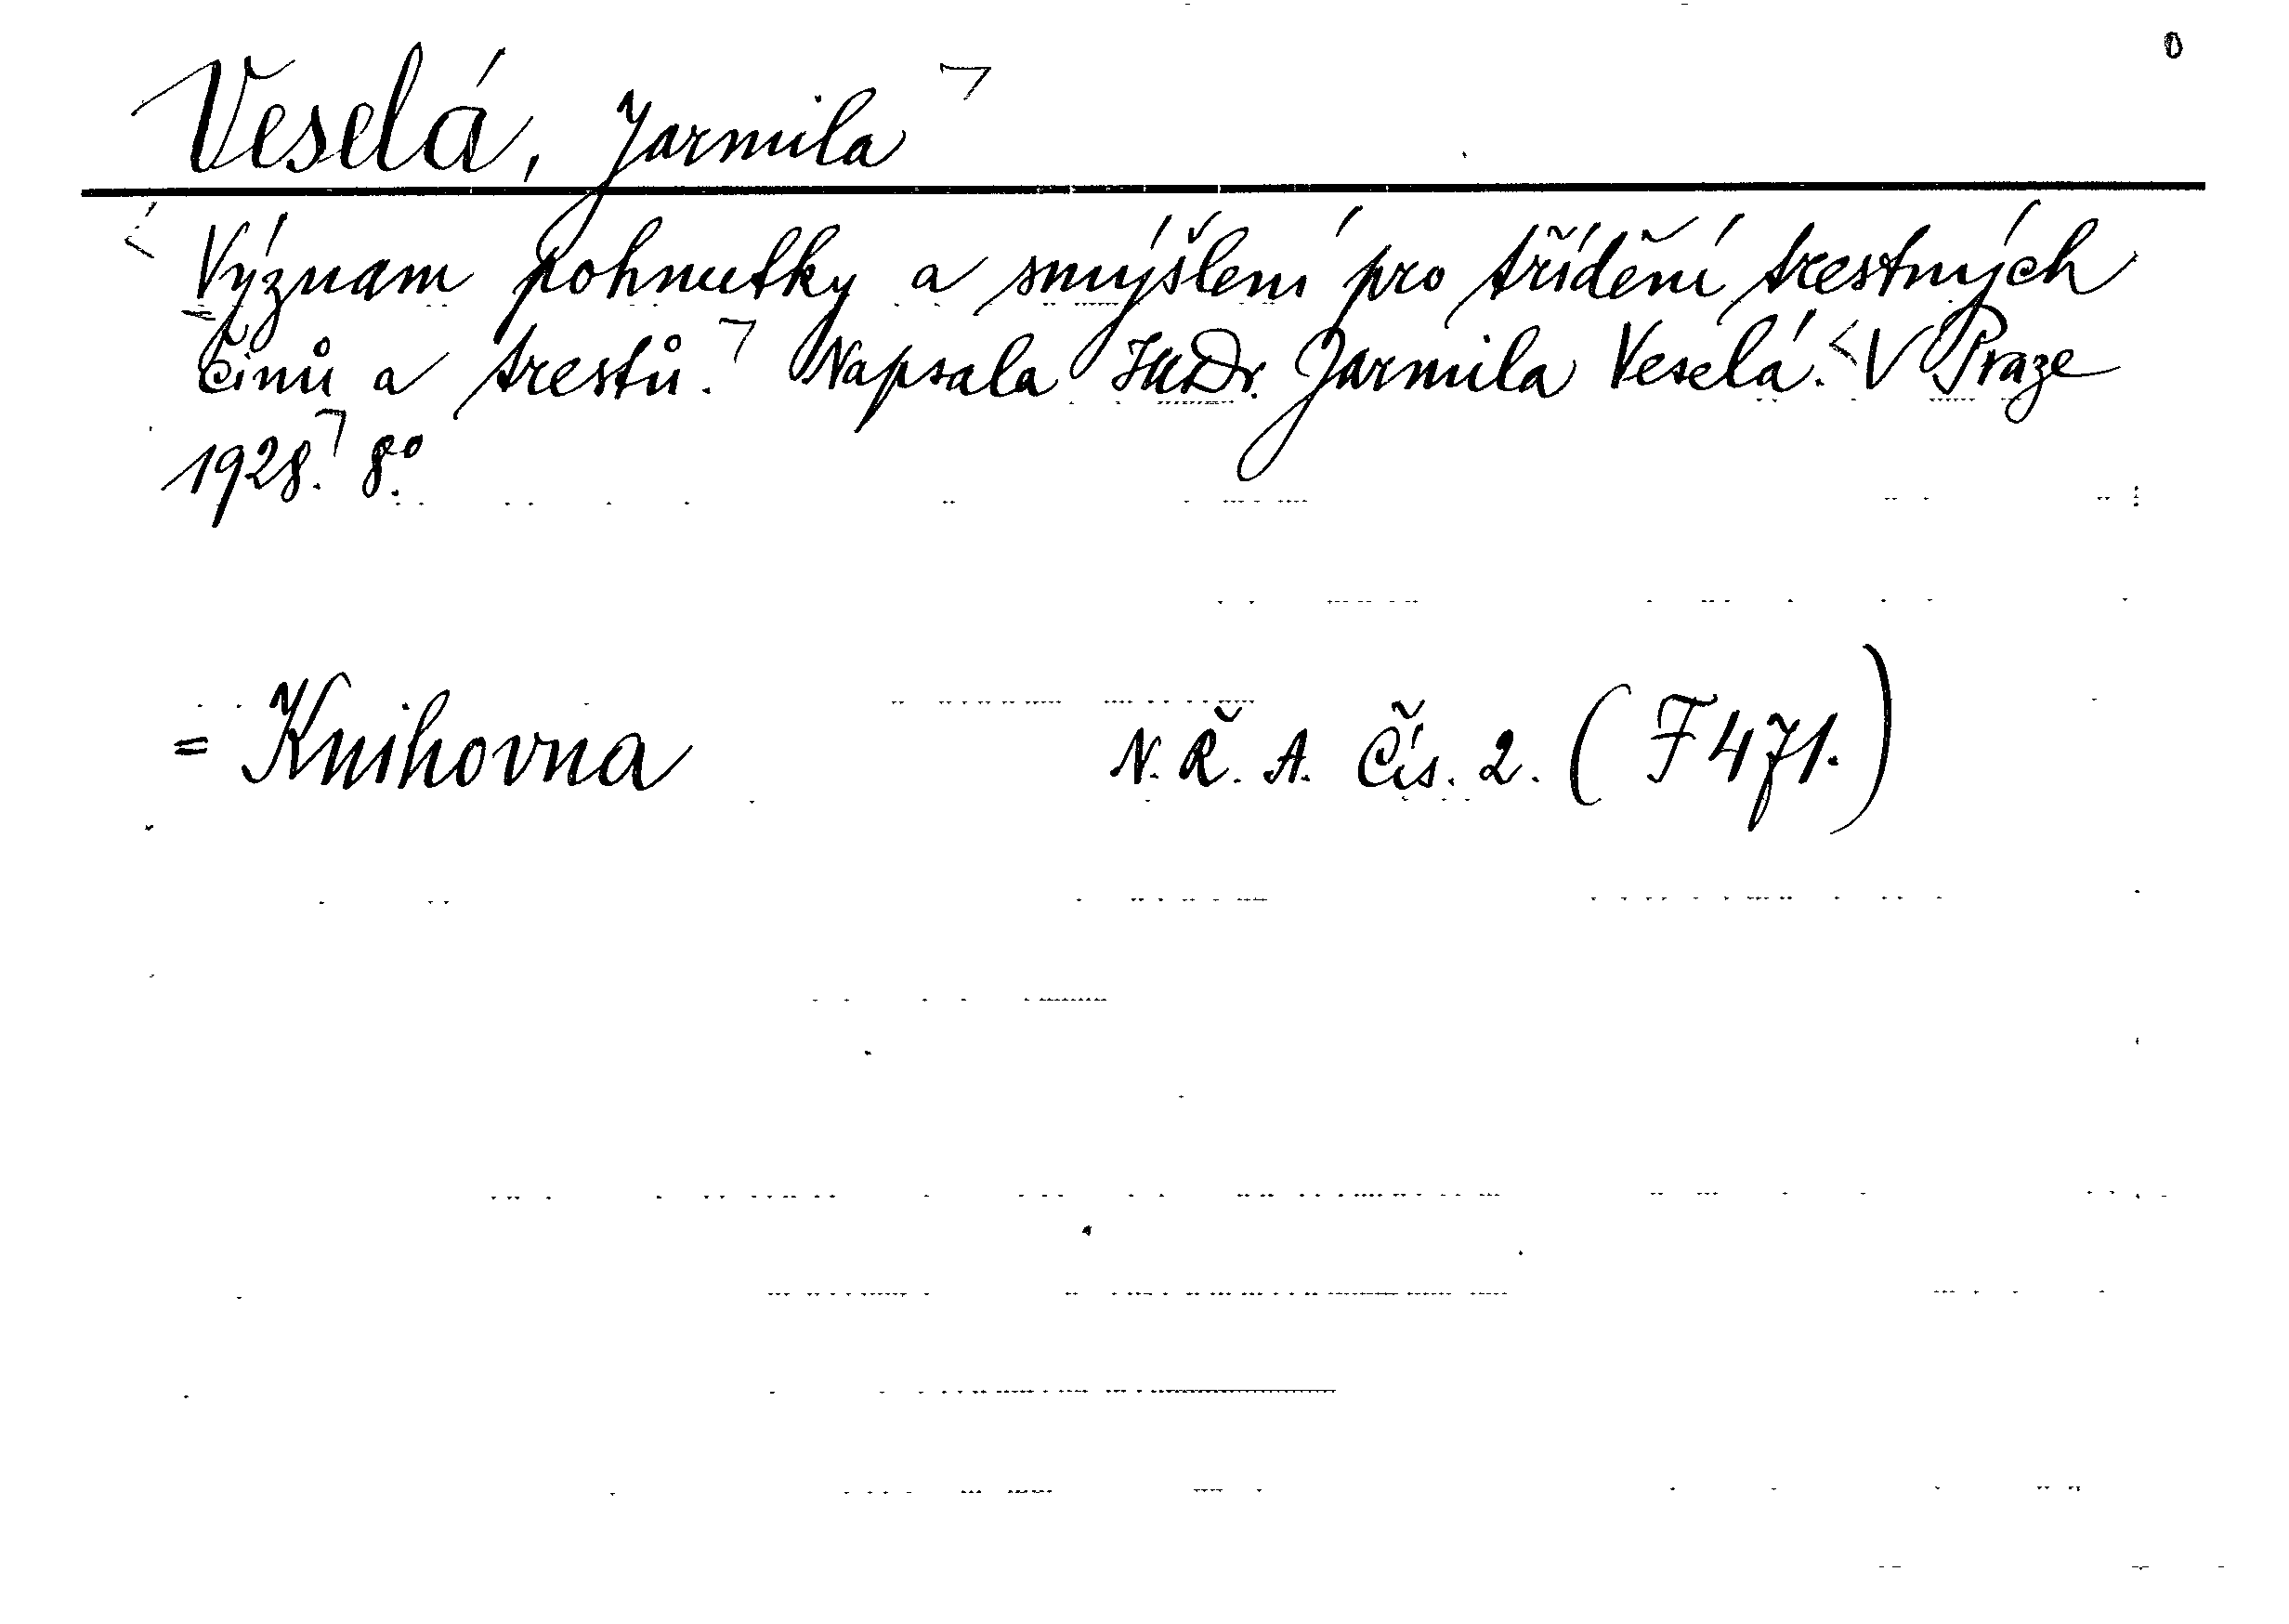 Veselá, Jarmila
Význam pohnutky a smýšlení pro třídění trestných
činů a trestů. Napsala JUDr. Jarmila Veselá. V Praze
1928. 8°.
= Knihovna N. Ř. A. Čís. 2. (F 471.)